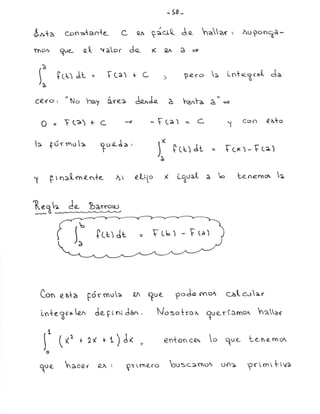 - 58 -
ésta constante C es fácil de hallar: suponga-
mos que el valor de x es a ⇒
∫ₐᵃ f(t) dt = F(a) + C ; pero la integral da
cero: "No hay área desde a hasta a" ⇒
0 = F(a) + C → - F(a) = C y con esto
la fórmula queda: ∫ₐˣ f(t) dt = F(x) - F(a)
y finalmente si elijo x igual a b tenemos la
Regla de Barrow
∫ₐᵇ f(t) dt = F(b) - F(a)
Con esta fórmula es que podemos calcular
integrales definidas. Nosotros queríamos hallar
∫₀¹ (x² + 2x + 1) dx , entonces lo que tenemos
que hacer es: primero buscamos una primitiva